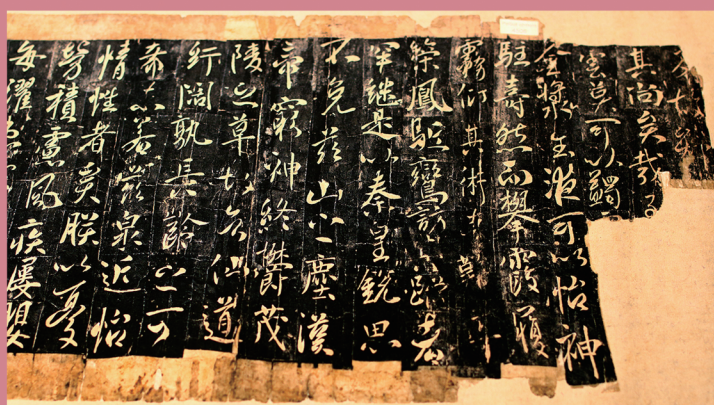 其尚矣哉
可以蠲
金漿玉液可以怡神
駐壽然而攀霞履
霧仰其術者難
策鳳駈鸞訪蹤者
罕繼是以秦皇銳思
不免茲山之塵漢
帝窮神終鬱茂
陵之草故知仙道
紆闊孰長齡之可
希未若茲泉近怡
情性者矣朕以憂
勞積慮風疾屢嬰
每濯